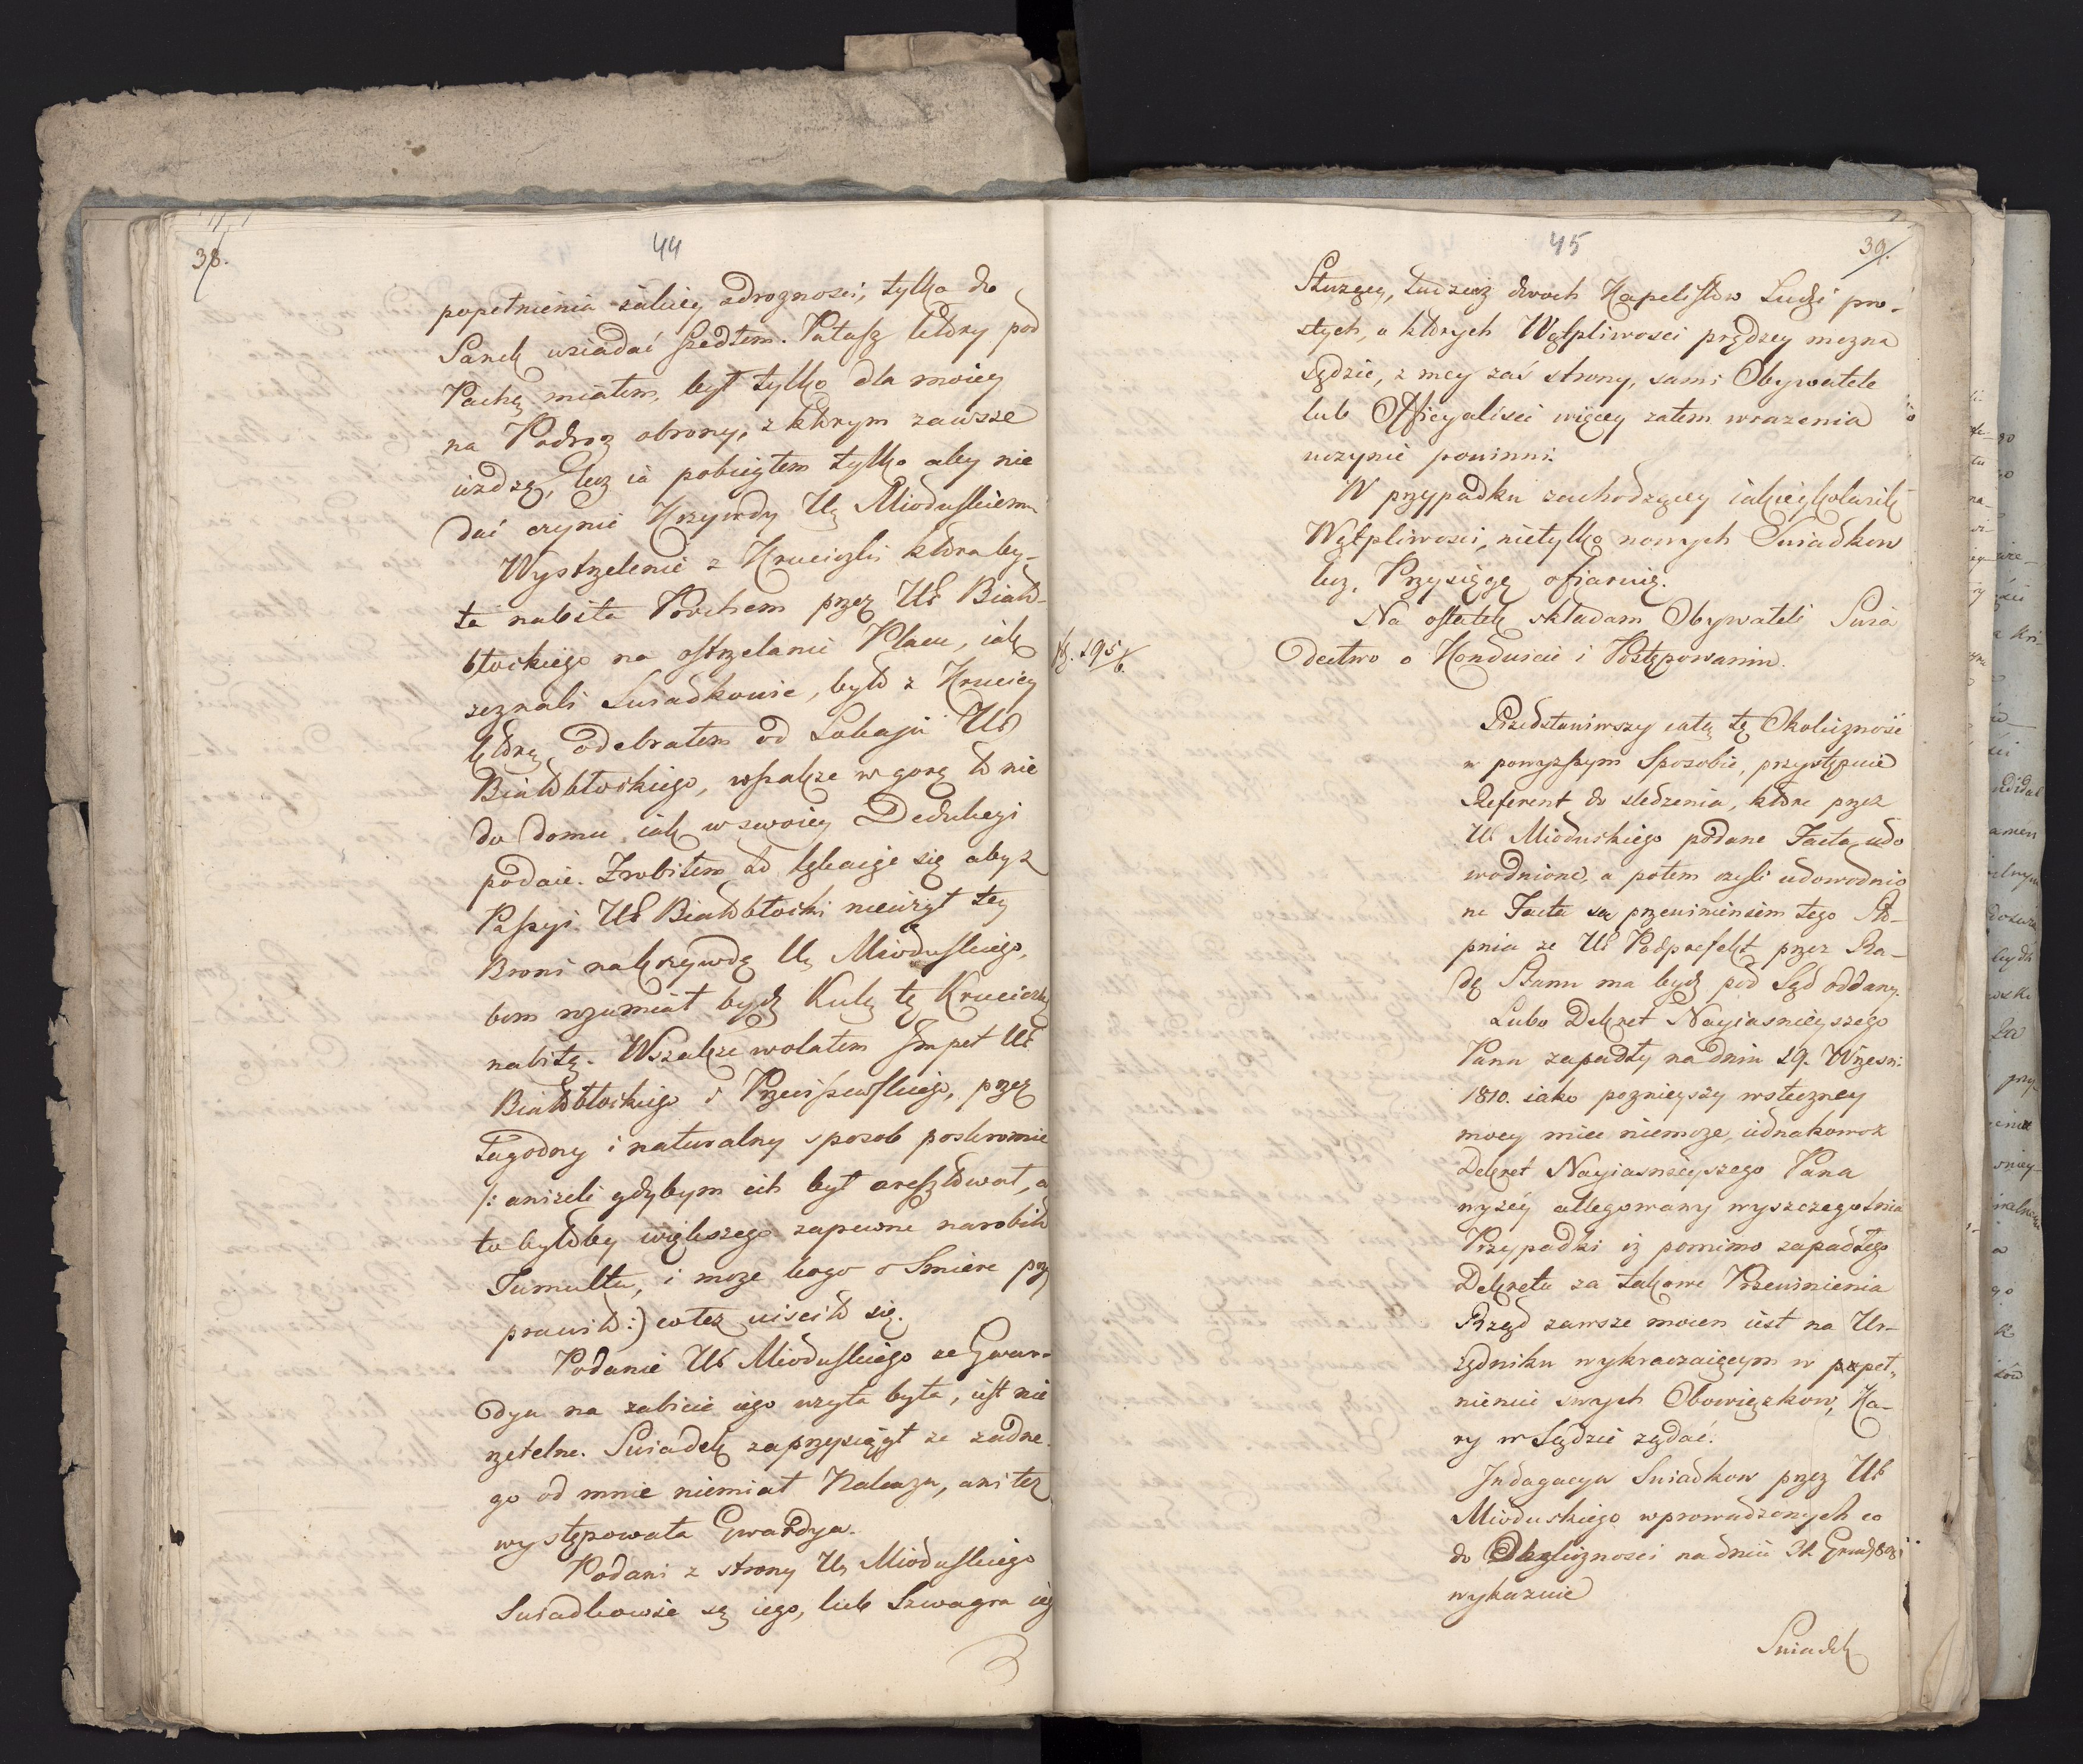 38.
44
popełnienia żałney zdrożnosci, tylko do
Sanek wsiadać szedłem. Pałasz który pod
Pachą miałem, był tylko dla moiey
na Podroz obrony, z którym zawsze
iezdzę, lecz ia pobiegłem tylko aby nie
dać czynić Krzywdy Ur Mioduskiemu
Wystrzelenie z Kruciczki która by-
ła nabita Prochem przez Ur Biało-
błockiego na ostrzelanie Placu, iak
zeznali Swiadkowie, było z Krucicy
którą odebrałem od Lokaja Ur
Białobłockiego, wszakze w gorę to nie
do domu iak w swoiey Dedukcyi
podaie. Zrobiłem to lękaiąc się aby z
Passyi Ur Białobłocki nieużył tey
Broni na krzywdę Ur Mioduskiego,
bom rozumiał bydz Kulą tę Krucicżkę
nabitą. Wszakże wolałem Impet Ur
Białobłockiego i Przeciszewskiego, przez
Łagodny i naturalny sposob poskromić
/: aniżeli gdybym ich był aresztował, a
to byłoby większego zapewne narobiło
Tumultu, i może kogo o Smierc przy
prawiło :) co też uisciło się.
Podanie Ur Mioduskiego ze Gwar-
dya na zabicie iego użyta była, iest nie
rzetelne. Swiadek zaprzysiągł ze zadne-
go od mnie niemiał Nakazu, ani tez
występowała Gwardya.
Podani z strony Ur Mioduskiego
Swiadkowie są iego, lub Szwagra ieg
45
39.
Służący, tudzież dwoch Kapelistow Ludzi pro-
stych, o których Wątpliwosci prędzey mozna
sądzic, z mey zaś strony, sami Obywatele
lub Officyalisci więcey zatem wrazenia
uczynić powinni.
W przypadku zachodzącey iakieykolwiek
Wątpliwosci, nietylko nowych Swiadkow
lecz Przysięgę ofiaruię.
Na ostatek składam Obywateli Swia
dectwo o Konduicie i Postępowaniu.
195/6.
Przedstawiwszy całą tę Okoliczność
w powyższym Sposobie, przystępuie
Referent do sledzenia, które przez
Ur Mioduskiego podane Facta udo
wodnione, a potem czyli udowodnio
ne Facta są przewinieniem tego Sto-
pnia ze Ur Podprefekt przez Ra-
dę Stanu ma bydz pod Sąd oddany.
Lubo Dekret Nayiasnieyszego
Pana zapadły na dniu 29. Wrzesn:
1810. iako poznieyszy wsteczney
mocy miec niemoze, iednakowoz
Dekret Nayiasnieyszego Pana
wyżey allegowany wyszczegolnia
Przypadki iz pomimo zapadłego
Dekretu za takowe Przewinienia
Rząd zawsze mocen iest na Ur-
zędniku wykraczaiącym w popeł,
nieniu swych Obowiązkow, Ka-
ry w Sądzie ządać.
Indagacya Swiadkow przez Ur
Mioduskiego wprowadzonych co
do Okoliczności na dniu 31. Grud 808
wykazuie
Swiadek